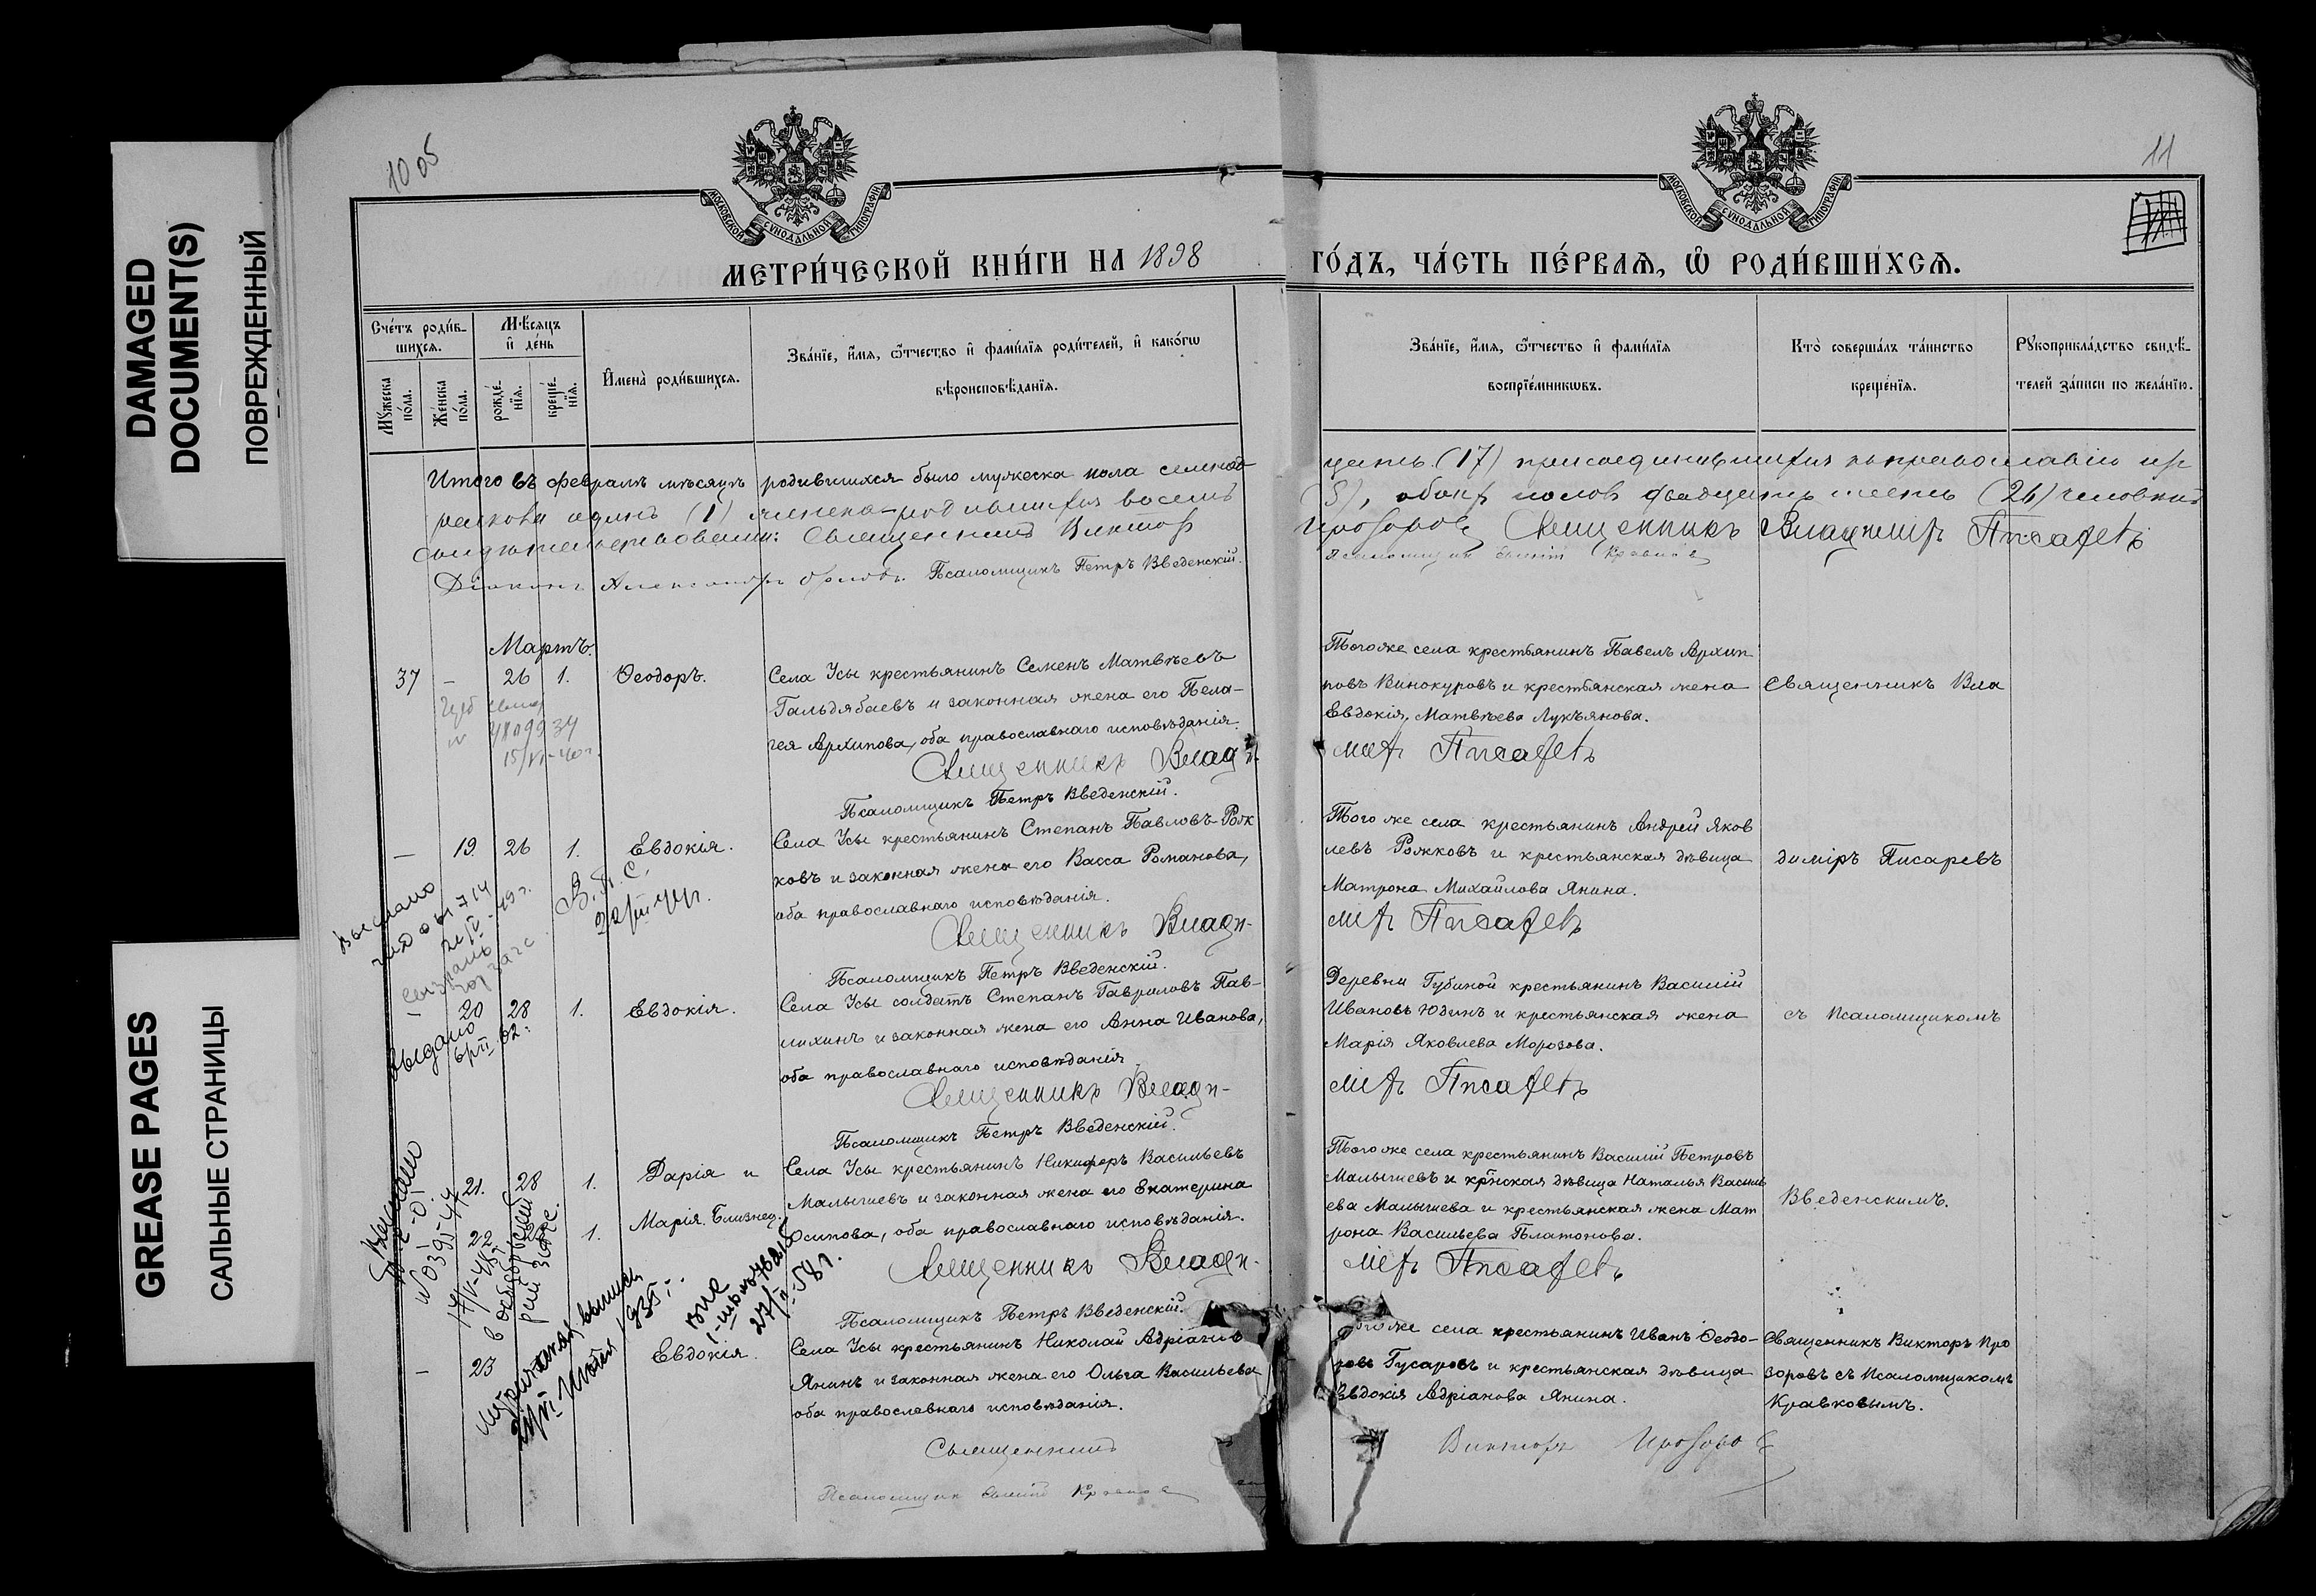 DAMAGED
DOCUMENT(S)
ПОВРЕЖДЕННЫЙ
GREASE PAGES
САЛЬНЫЕ СТРАНИЦЫ
1005
11
МОСКОВСКОЙ СУНОДАЛЬНОЙ ТИПОГРАФИИ
МОСКОВСКОЙ СУНОДАЛЬНОЙ ТИПОГРАФИИ
МЕТРИ́ЧЕСКОЙ КНИ́ГИ НА 1898 ГО́ДЪ, ЧА́СТЬ ПЕ́РВАѦ, Ѽ РОДИ́ВШИХСѦ.
Сче́тъ роди́в-
шихсѧ.
Мѣ́сѧцъ
и҆ де́нь
Мꙋ́жеска
по́ла.
Же́нска
по́ла.
рожде́-
нїѧ.
креще́-
нїѧ.
И҆мена̀ роди́вшихсѧ.
Зва́нїе, и҆́мѧ, ѻ҆́тчество и҆ фами́лїѧ роди́телей, и҆ како́гѡ
вѣроисповѣ́данїѧ.
Зва́нїе, и҆́мѧ, ѻ҆́тчество и҆ фами́лїѧ
воспрїе́мникѡвъ.
Кто̀ соверша́лъ та́инство
креще́нїѧ.
Рꙋкоприкла́дство свидѣ́-
телей за́писи по жела́нїю.
Итого въ февралѣ мѣсяцѣ родившихся было мужеска пола семнад-
цать (17) присоединившихся къ православію
одинъ (1) женска родившихся восемь
обоихъ половъ двадцать шесть (26) человѣкъ
Священникъ Викторъ
Прозоровъ Священникъ Владиміръ Писаревъ
Діаконъ Александръ Орловъ. Псаломщикъ Петръ Введенскій.
Мартъ.
37 – 26 1. Ѳеодоръ.
Села Усы крестьянинъ Семенъ Матвѣевъ
Гальдябаевъ и законная жена его Пела-
гея Архипова, оба православнаго исповѣданія.
Священникъ Влади-
Псаломщикъ Петръ Введенскій.
Тогоже села крестьянинъ Павелъ Архип
повъ Винокуровъ и крестьянская жена
Евдокія Матвѣева Лукъянова.
міръ Писаревъ
Священникъ Вла
4809934
15/VI-40 г.
— 19. 26 1. Евдокія.
Села Усы крестьянинъ Степанъ Павловъ Рож
ковъ и законная жена его Васса Романова,
оба православнаго исповѣданія.
Священникъ Влади-
Псаломщикъ Петръ Введенскій.
Того же села крестьянинъ Андрей Яков
левъ Рожковъ и крестьянская дѣвица
Матрона Михайлова Янина.
міръ Писаревъ
диміръ Писаревъ
Выслано
20 28 1. Евдокія.
Села Усы солдатъ Степанъ Гавриловъ Пав-
лихинъ и законная жена его Анна Иванова,
оба православнаго исповѣданія.
Священникъ Влади-
Псаломщикъ Петръ Введенскій.
Деревни Губиной крестьянинъ Василій
Ивановъ Юдинъ и крестьянская жена
Марія Яковлева Морозова.
міръ Писаревъ
съ Псаломщикомъ
Выдано
21. 28 1. Дарія и
22 1. Марія. Близнец.
Села Усы крестьянинъ Никифоръ Васильевъ
Малышевъ и законная жена его Екатерина
Осипова, оба православнаго исповѣданія.
Священникъ Влади-
Псаломщикъ Петръ Введенскій.
Тогоже села крестьянинъ Василій Петровъ
Малышевъ и крѣнская дѣвица Наталья Василь
ева Малышева и крестьянская жена Мат
рона Васильева Платонова.
міръ Писаревъ
Введенскимъ.
Выслано
– 23 Евдокія.
Села Усы крестьянинъ Николай Адріановъ
Янинъ и законная жена его Ольга Васильева
оба православнаго исповѣданія.
Священникъ
Тогоже села крестьянинъ Иванъ Ѳеодо-
ровъ Гусаровъ и крестьянская дѣвица
Евдокія Адріанова Янина.
Викторъ Прозоровъ
Священникъ Викторъ Про
зоровъ съ Псаломщикомъ
Кравковымъ.
27/II-58 г.
1935 г.